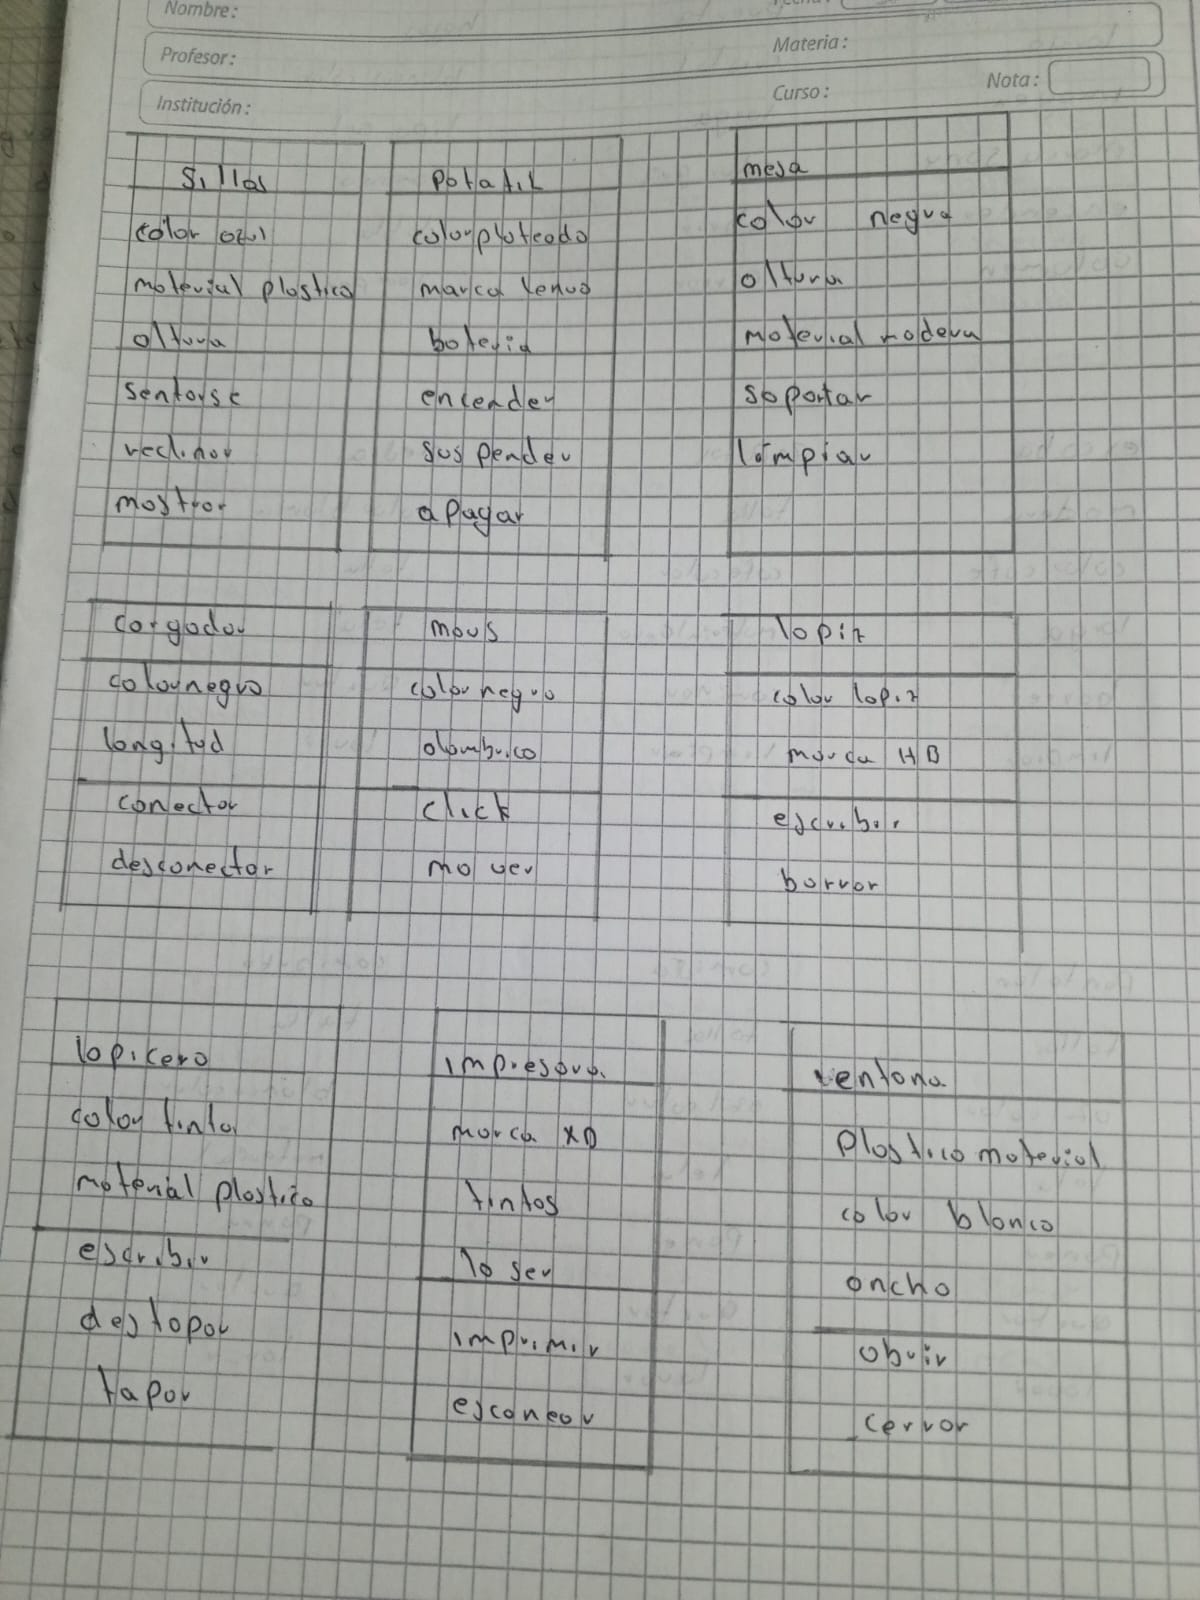 Nombre:
Profesor:
Materia:
Institución:
Curso:
Nota:
Sillas
color azul
material plastico
altura
sentarse
reclinar
mostrar
Potatil
color plateado
marca lenvo
bateria
encender
suspender
apagar
mesa
color negra
altura
material madera
soportar
limpiar
cargador
color negro
longitud
conectar
desconectar
mous
color negro
alambrico
click
mover
lapiz
color lapiz
marca HB
escribir
borrar
lapicero
color tinta
material plastico
escribir
destapar
tapar
impresora
marca XD
tintas
laser
imprimir
escanear
ventana
Plastico material
color blanco
ancho
abrir
cerrar